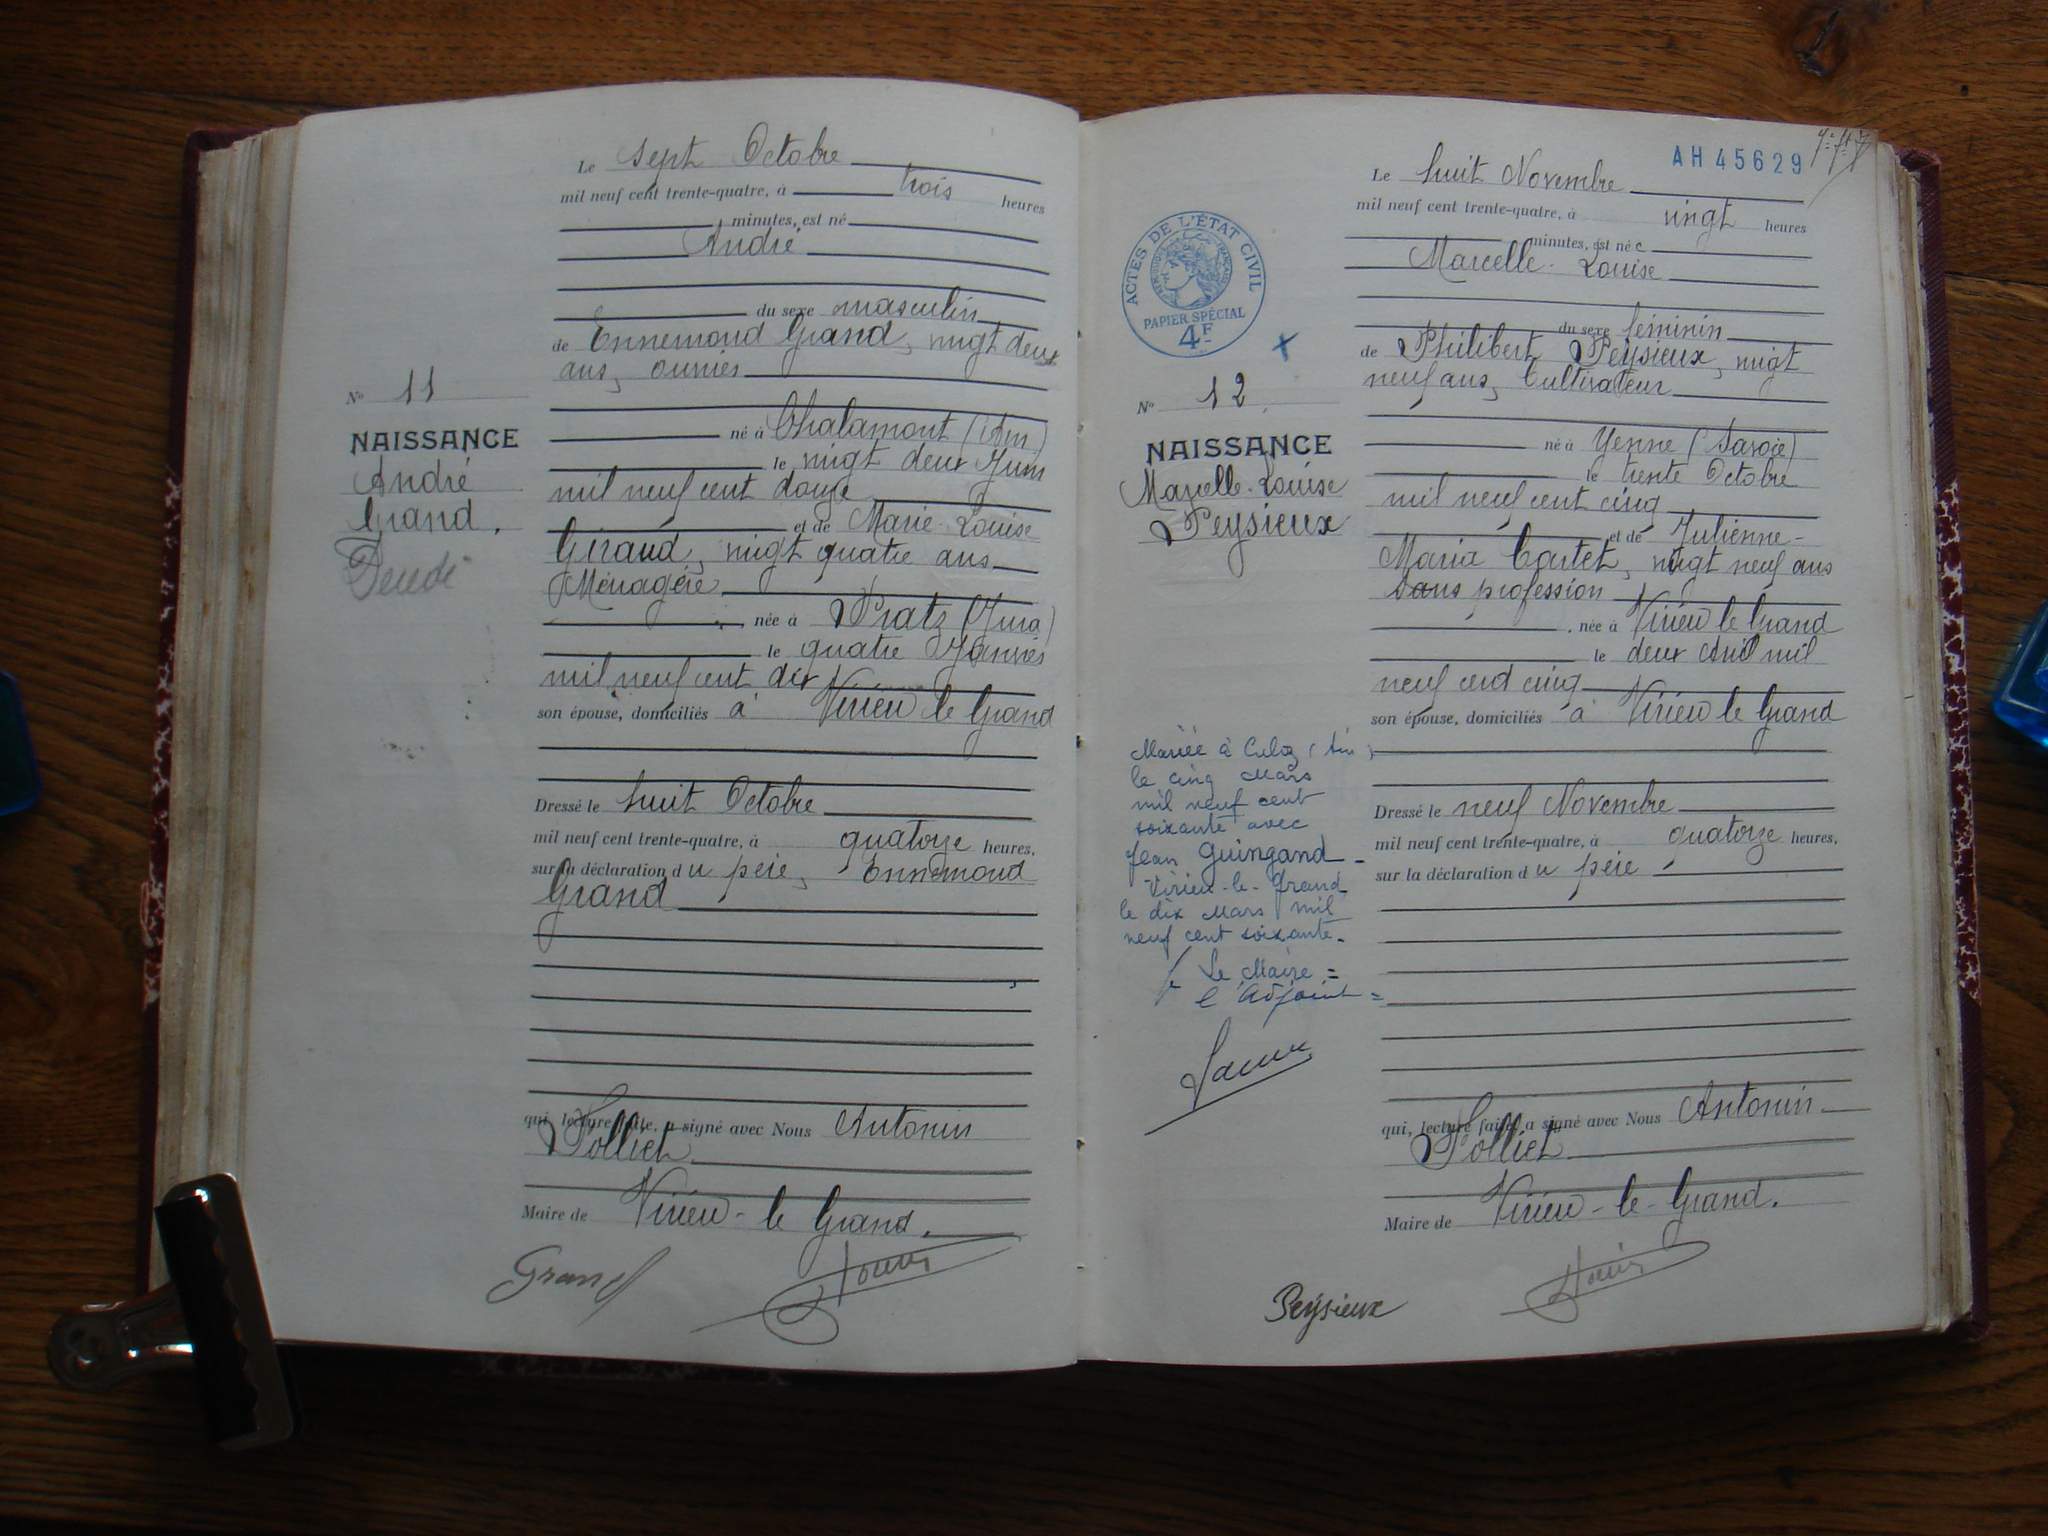 Le sept Octobre
mil neuf cent trente-quatre, à trois heures
minutes, est né
André
du sexe masculin
de Ennemond Grand, vingt deux
ans, ouvrier
né à Chalamont (Ain)
le vingt deux Juin
mil neuf cent douze
et de Marie-Louise
Giraud, vingt quatre ans
Ménagère
née à Pratz (Jura)
le quatre Janvier
mil neuf cent dix
son épouse, domiciliés à Virieu le Grand
Dressé le huit Octobre
mil neuf cent trente-quatre, à quatorze heures,
sur la déclaration du père, Ennemond
Grand
qui, lecture faite, a signé avec Nous Antonin
Polliet
Maire de Virieu-le Grand.
Grand
N° 11
NAISSANCE
André
Grand.
AH 45629
Le huit Novembre
mil neuf cent trente-quatre, à vingt heures
minutes, est née
Marcelle-Louise
du sexe féminin
de Philibert Peysieux, vingt
neuf ans, Cultivateur
né à Yenne (Savoie)
le trente Octobre
mil neuf cent cinq
et de Julienne-
Maria Cartet, vingt neuf ans
sans profession
née à Virieu le Grand
le deux Avril mil
neuf cent cinq
son épouse, domiciliés à Virieu le Grand
Dressé le neuf Novembre
mil neuf cent trente-quatre, à quatorze heures,
sur la déclaration du père
qui, lecture faite, a signé avec Nous Antonin
Polliet
Maire de Virieu-le-Grand.
Peysieux
ACTES DE L'ÉTAT CIVIL
RÉPUBLIQUE FRANÇAISE
PAPIER SPÉCIAL
4F
N° 12
NAISSANCE
Marcelle-Louise
Peysieux
Mariée à Culoz (Ain)
le cinq Mars
mil neuf cent
soixante avec
Jean Guingand-
Virieu-le-Grand
le dix Mars mil
neuf cent soixante.
Le Maire =
l'Adjoint =